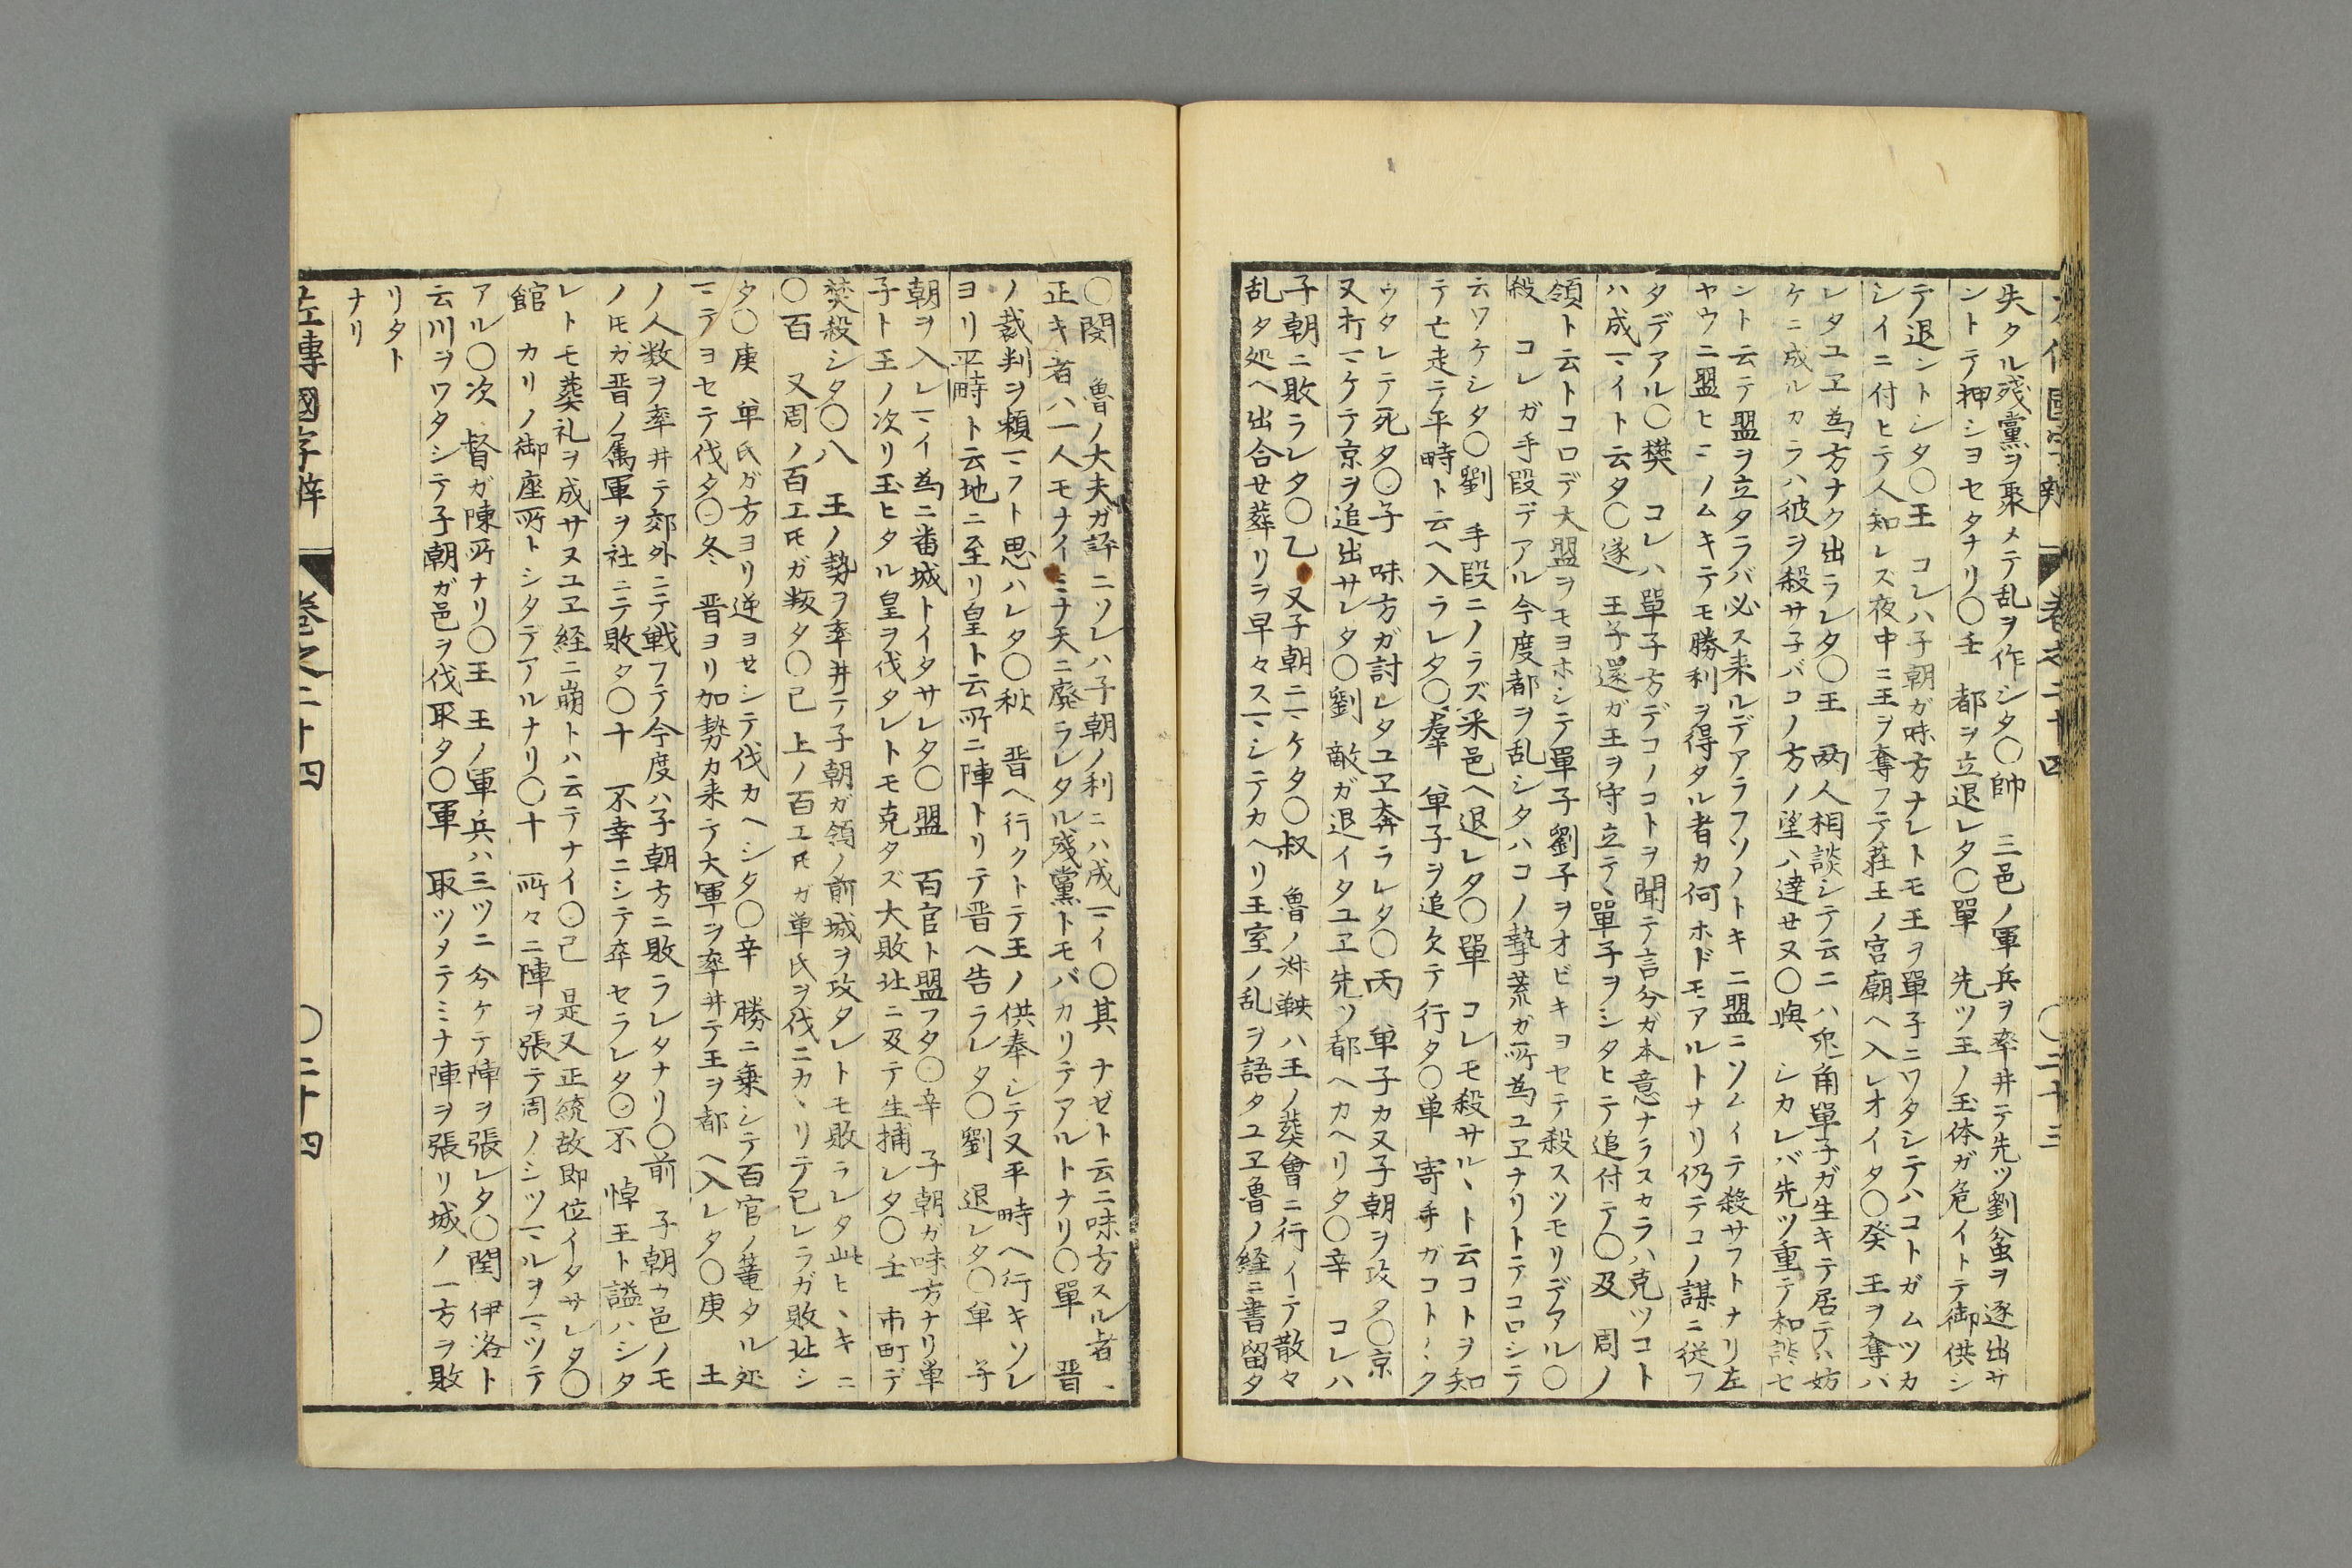 失タル残黨ヲ聚メテ乱ヲ作シタ〇帥 三邑ノ軍兵ヲ率井テ先ツ劉盆ヲ逐出サ
ントテ押シヨセタナリ〇壬 都ヲ立退レタ〇單 先ツ王ノ玉体ガ危イトテ御供シ
テ退ントシタ〇王 コレハ子朝ガ味方ナレトモ王ヲ單子ニワタシテハコトガムツカ
シイニ付ヒテ人知レズ夜中ニ王ヲ奪フテ荘王ノ宮廟ヘ入レオイタ〇癸 王ヲ奪ハ
レタユヱ為方ナク出ラレタ〇王 両人相談シテ云ニハ兎角單子ガ生キテ居テハ妨
ケニ成ルカラハ彼ヲ殺サ子バコノ方ノ望ハ達セヌ〇與 シカレバ先ツ重テ和談セ
ント云テ盟ヲ立タラバ必ス来ルデアラフソノトキニ盟ニソムイテ殺サフトナリ左
ヤウニ盟ヒニノムキテモ勝利ヲ得タル者カ何ホドモアルトナリ仍テコノ謀ニ従フ
タデアル〇樊 コレハ單子方デコノコトヲ聞テ言分ガ本意ナラスカラハ克ツコト
ハ成マイト云タ〇遂 王子還ガ王ヲ守立テヽ單子ヲシタヒテ追付テ〇及 周ノ
領ト云トコロデ大盟ヲモヨホシテ單子劉子ヲオビキヨセテ殺スツモリデアル〇
殺 コレガ手段デアル今度都ヲ乱シタハコノ摯荒ガ所為ユヱナリトテコロシテ
云ワケシタ〇劉 手段ニノラズ采邑ヘ退レタ〇單 コレモ殺サルヽト云コトヲ知
テ亡走テ平畤ト云ヘ入ラレタ〇羣 単子ヲ追欠テ行タ〇単 寄手ガコト〱ク
ウタレテ死タ〇子 味方ガ討レタユヱ奔ラレタ〇丙 単子カ又子朝ヲ攻タ〇京
又打マケテ京ヲ追出サレタ〇劉 敵ガ退イタユヱ先ツ都ヘカヘリタ〇辛 コレハ
子朝ニ敗ラレタ〇乙 又子朝ニマケタ〇叔 魯ノ叔鞅ハ王ノ葬會ニ行イテ散々
乱タ処ヘ出合セ葬リヲ早々スマシテカヘリ王室ノ乱ヲ語タユヱ魯ノ経ニ書留タ
〇閔 魯ノ大夫ガ評ニソレハ子朝ノ利ニハ成マイ〇其 ナゼト云ニ味方スル者ヽ
正キ者ハ一人モナイミナ天ニ廃ラレタル残黨トモバカリテアルトナリ〇單 晋
ノ裁判ヲ頼マフト思ハレタ〇秋 晋ヘ行クトテ王ノ供奉シテ又平畤ヘ行キソレ
ヨリ平畤ト云地ニ至リ皇ト云所ニ陣トリテ晋ヘ告ラレタ〇劉 退レタ〇単 子
朝ヲ入レマイ為ニ番城トイタサレタ〇盟 百官ト盟フタ〇辛 子朝ガ味方ナリ単
子ト王ノ次リ玉ヒタル皇ヲ伐タレトモ克タズ大敗北ニ及テ生捕レタ〇壬 市町デ
焚殺シタ〇八 王ノ勢ヲ率井テ子朝ガ領ノ前城ヲ攻タレトモ敗ラレタ此ヒヽキニ
〇百 又周ノ百工氏ガ叛タ〇己 上ノ百工氏ガ単氏ヲ伐ニカヽリテ己レラガ敗北シ
タ〇庚 単氏ガ方ヨリ逆ヨセシテ伐カヘシタ〇辛 勝ニ乗シテ百官ノ篭タル処
マテヨセテ伐タ〇冬 晋ヨリ加勢カ来テ大軍ヲ率井テ王ヲ都ヘ入レタ〇庚 土
ノ人数ヲ率井テ郊外ニテ戦フテ今度ハ子朝方ニ敗ラレタナリ〇前 子朝カ邑ノモ
ノ氏ガ晋ノ属軍ヲ社ニテ敗タ〇十 不幸ニシテ卒セラレタ〇不 悼王ト謚ハシタ
レトモ葬礼ヲ成サヌユヱ経ニ崩トハ云テナイ〇己 是又正統故即位イタサレタ〇
館 カリノ御座所トシタデアルナリ〇十 所々ニ陣ヲ張テ周ノシツマルヲマツテ
アル〇次 督ガ陳所ナリ〇王 王ノ軍兵ハ三ツニ分ケテ陣ヲ張レタ〇閏 伊洛ト
云川ヲワタシテ子朝ガ邑ヲ伐取タ〇軍 取ツタテミナ陣ヲ張リ城ノ一方ヲ敗
リタト
ナリ
左傳國字辯 巻之二十四 〇二十四